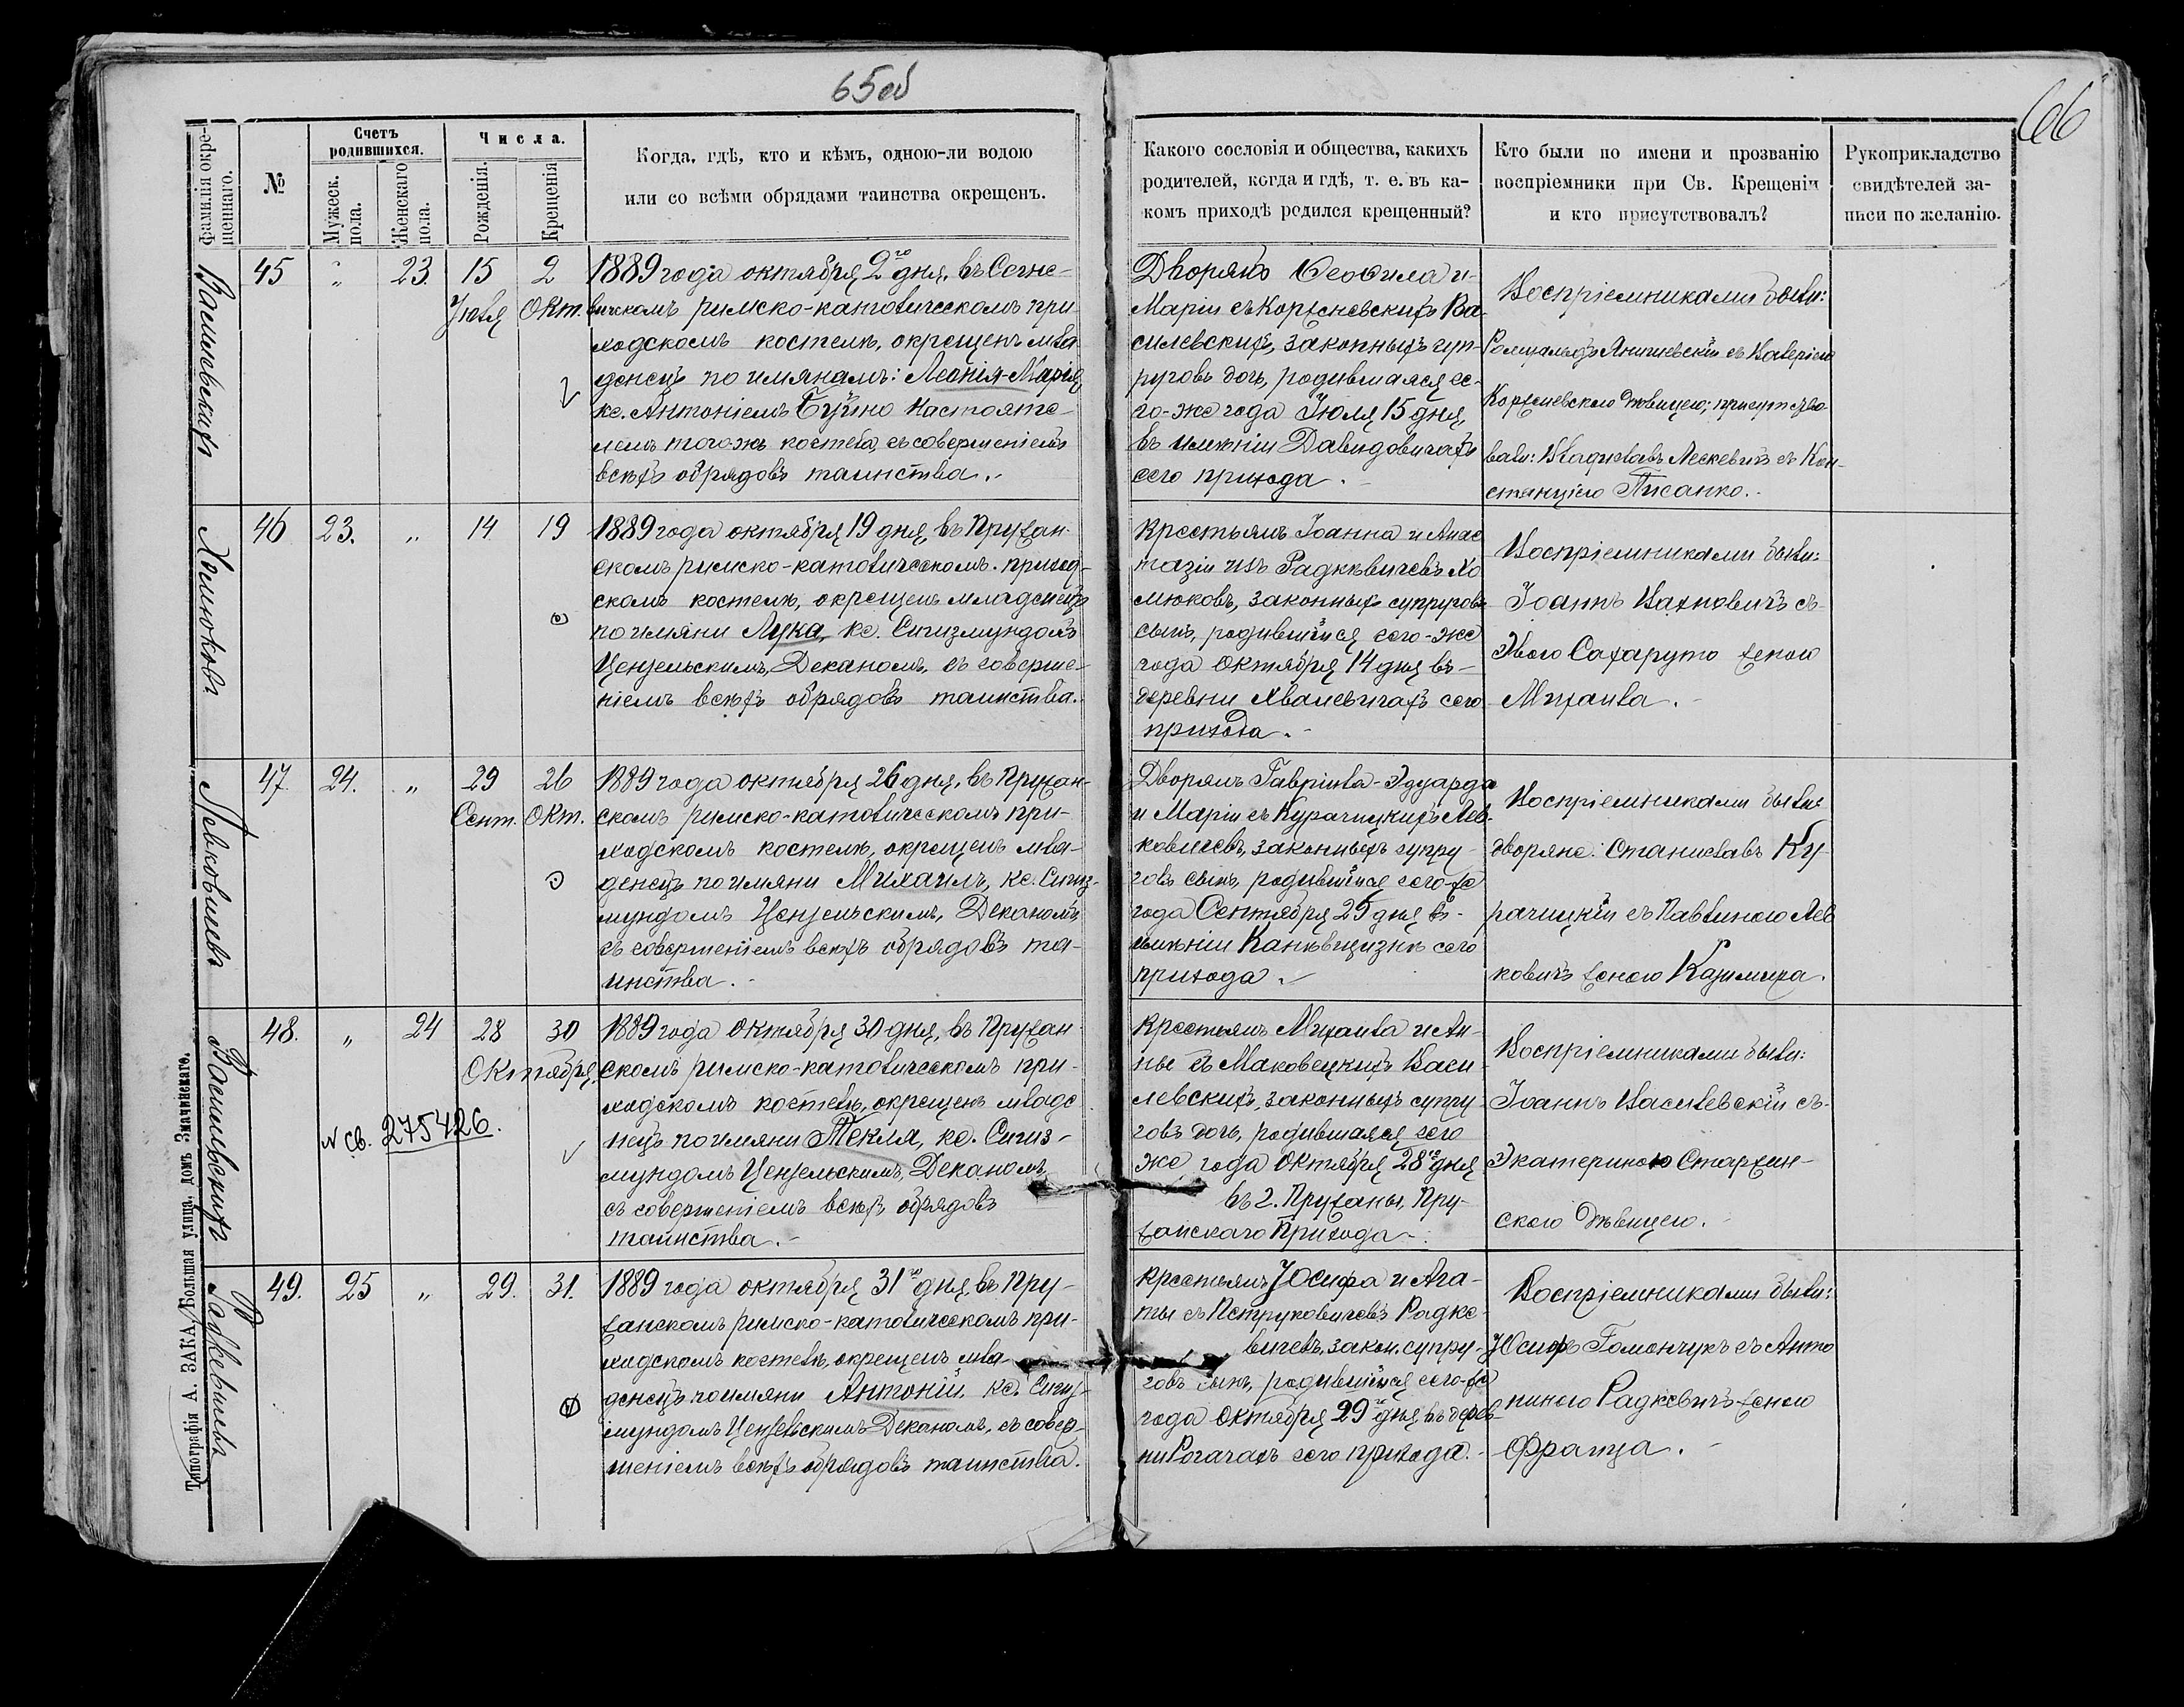 65об
66
Фамилія окре-
щеннаго.
№
Счетъ
родившихся.
Мужеск.
пола.
Женскаго
пола.
Числа.
Рожденія.
Крещенія
Когда, гдѣ, кто и кѣмъ, одною-ли водою
или со всѣми обрядами таинства окрещенъ.
Какого сословія и общества, какихъ
родителей, когда и гдѣ, т. е. въ ка-
комъ приходѣ родился крещенный?
Кто были по имени и прозванію
воспріемники при Св. Крещеніи
и кто присутствовалъ?
Рукоприкладство
свидѣтелей за-
писи по желанію.
Василевскихъ
45 " 23. 15 2
Іюля Окт.
1889 года октября 2го дня, въ Сегне-
вичскомъ римско-католическомъ при-
ходскомъ костелѣ, окрещенъ мла
денецъ по имянамъ: Леонія-Марія,
кс. Антоніемъ Буйно Настояте-
лемъ того-жъ костела, съ совершеніемъ
всѣхъ обрядовъ таинства.
Дворянъ Ѳеофила и
Маріи съ Корженевскихъ Ва-
силевскихъ, законныхъ суп-
руговъ дочь, родившаяся се-
го-же года Іюля 15 дня,
въ имѣніи Давидовичахъ
сего прихода.
Воспріемниками были:
Ромуальдъ съ Валеріею
Корженевскою дѣвицею; присутство-
вали: Владиславъ Лескевичъ съ Кон-
станціею Писанко.
Хомюковъ
46 23. " 14 19
1889 года октября 19 дня, въ Пружан-
скомъ римско-католическомъ приход-
скомъ костелѣ, окрещенъ младенецъ
по имяни Лука, кс. Сигизмундомъ
Ценцельскимъ, Деканомъ, съ соверше-
ніемъ всѣхъ обрядовъ таинства.
Крестьянъ Іоанна и Анас
тазіи изъ Радкѣвичевъ Хо
мюковъ, законныхъ супруговъ
сынъ, родившійся сего-же
года Октября 14 дня въ
деревни Хвалевичахъ сего
прихода.
Воспріемниками были:
Іоаннъ Вахновичъ съ
Эвою Сахаруто женою
Михаила.
Левковичевъ
47 24. " 29 26
Сент. Окт.
1889 года октября 26 дня, въ Пружан-
скомъ римско-католическомъ при-
ходскомъ костелѣ, окрещенъ мла-
денецъ по имяни Михаилъ, кс. Сигиз-
мундомъ Ценцельскимъ, Деканомъ
съ совершеніемъ всѣхъ обрядовъ та-
инства.
Дворянъ Гавріила-Эдуарда
и Маріи съ Курачицкихъ Лев-
ковичевъ, законныхъ супру-
говъ сынъ, родившійся сего-же
года Сентября 29 дня въ
имѣніи сего
прихода.
Воспріемниками были
дворяне: Станиславъ Ку-
рачицкій съ Павлиною Лев
ковичъ женою Казимира.
Василевскихъ
48. " 24 28 30
Октября
N Св. 275426.
1889 года Октября 30 дня, въ Пружан-
скомъ римско-католическомъ при-
ходскомъ костелѣ, окрещенъ младе
нецъ по имяни Текля, кс. Сигиз-
мундомъ Ценцельскимъ, Деканомъ,
съ совершеніемъ всѣхъ обрядовъ
таинства.
Крестьянъ Михаила и Ан-
ны съ Маковецкихъ Васи-
левскихъ, законныхъ супру-
говъ дочь, родившаяся сего
же года Октября 28го дня
въ г. Пружаны, Пру-
жанскаго Прихода
Воспріемниками были:
Іоаннъ Василевскій съ
Экатериною Стархин-
скою дѣвицею.
Радкевичевъ
49. 25 " 29. 31.
1889 года октября 31го дня, въ Пру-
жанскомъ римско-католическомъ при-
ходскомъ костелѣ, окрещенъ мла-
денецъ по имяни Антоній, кс. Сигиз-
мундомъ Ценцельскимъ Деканомъ, съ совер-
шеніемъ всѣхъ обрядовъ таинства.
Крестьянъ Юсифа и Ага-
ты съ Петруковичевъ Радке-
вичевъ, закон. супру-
говъ сынъ, родившійся сего-же
года Октября 29го дня въ дерев-
ни Рогачахъ сего прихода.
Воспріемниками были:
Юсифъ Гомончукъ съ Анто
ниною Радкевичъ женою
Франца.
Типографія А. ЗАКА, Большая улица, домъ Значинскаго.